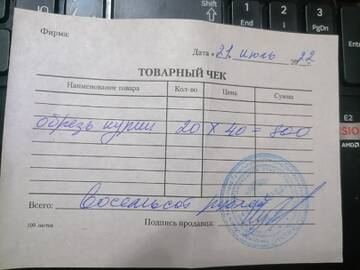 Фирма:
Дата «21» июль 2022
ТОВАРНЫЙ ЧЕК
Наименование товара Кол-во Цена Сумма
обрезь курин 20 х 40 = 800
Всего: Восемьсот рублей
100 листов Подпись продавца:
PgDn
AMD